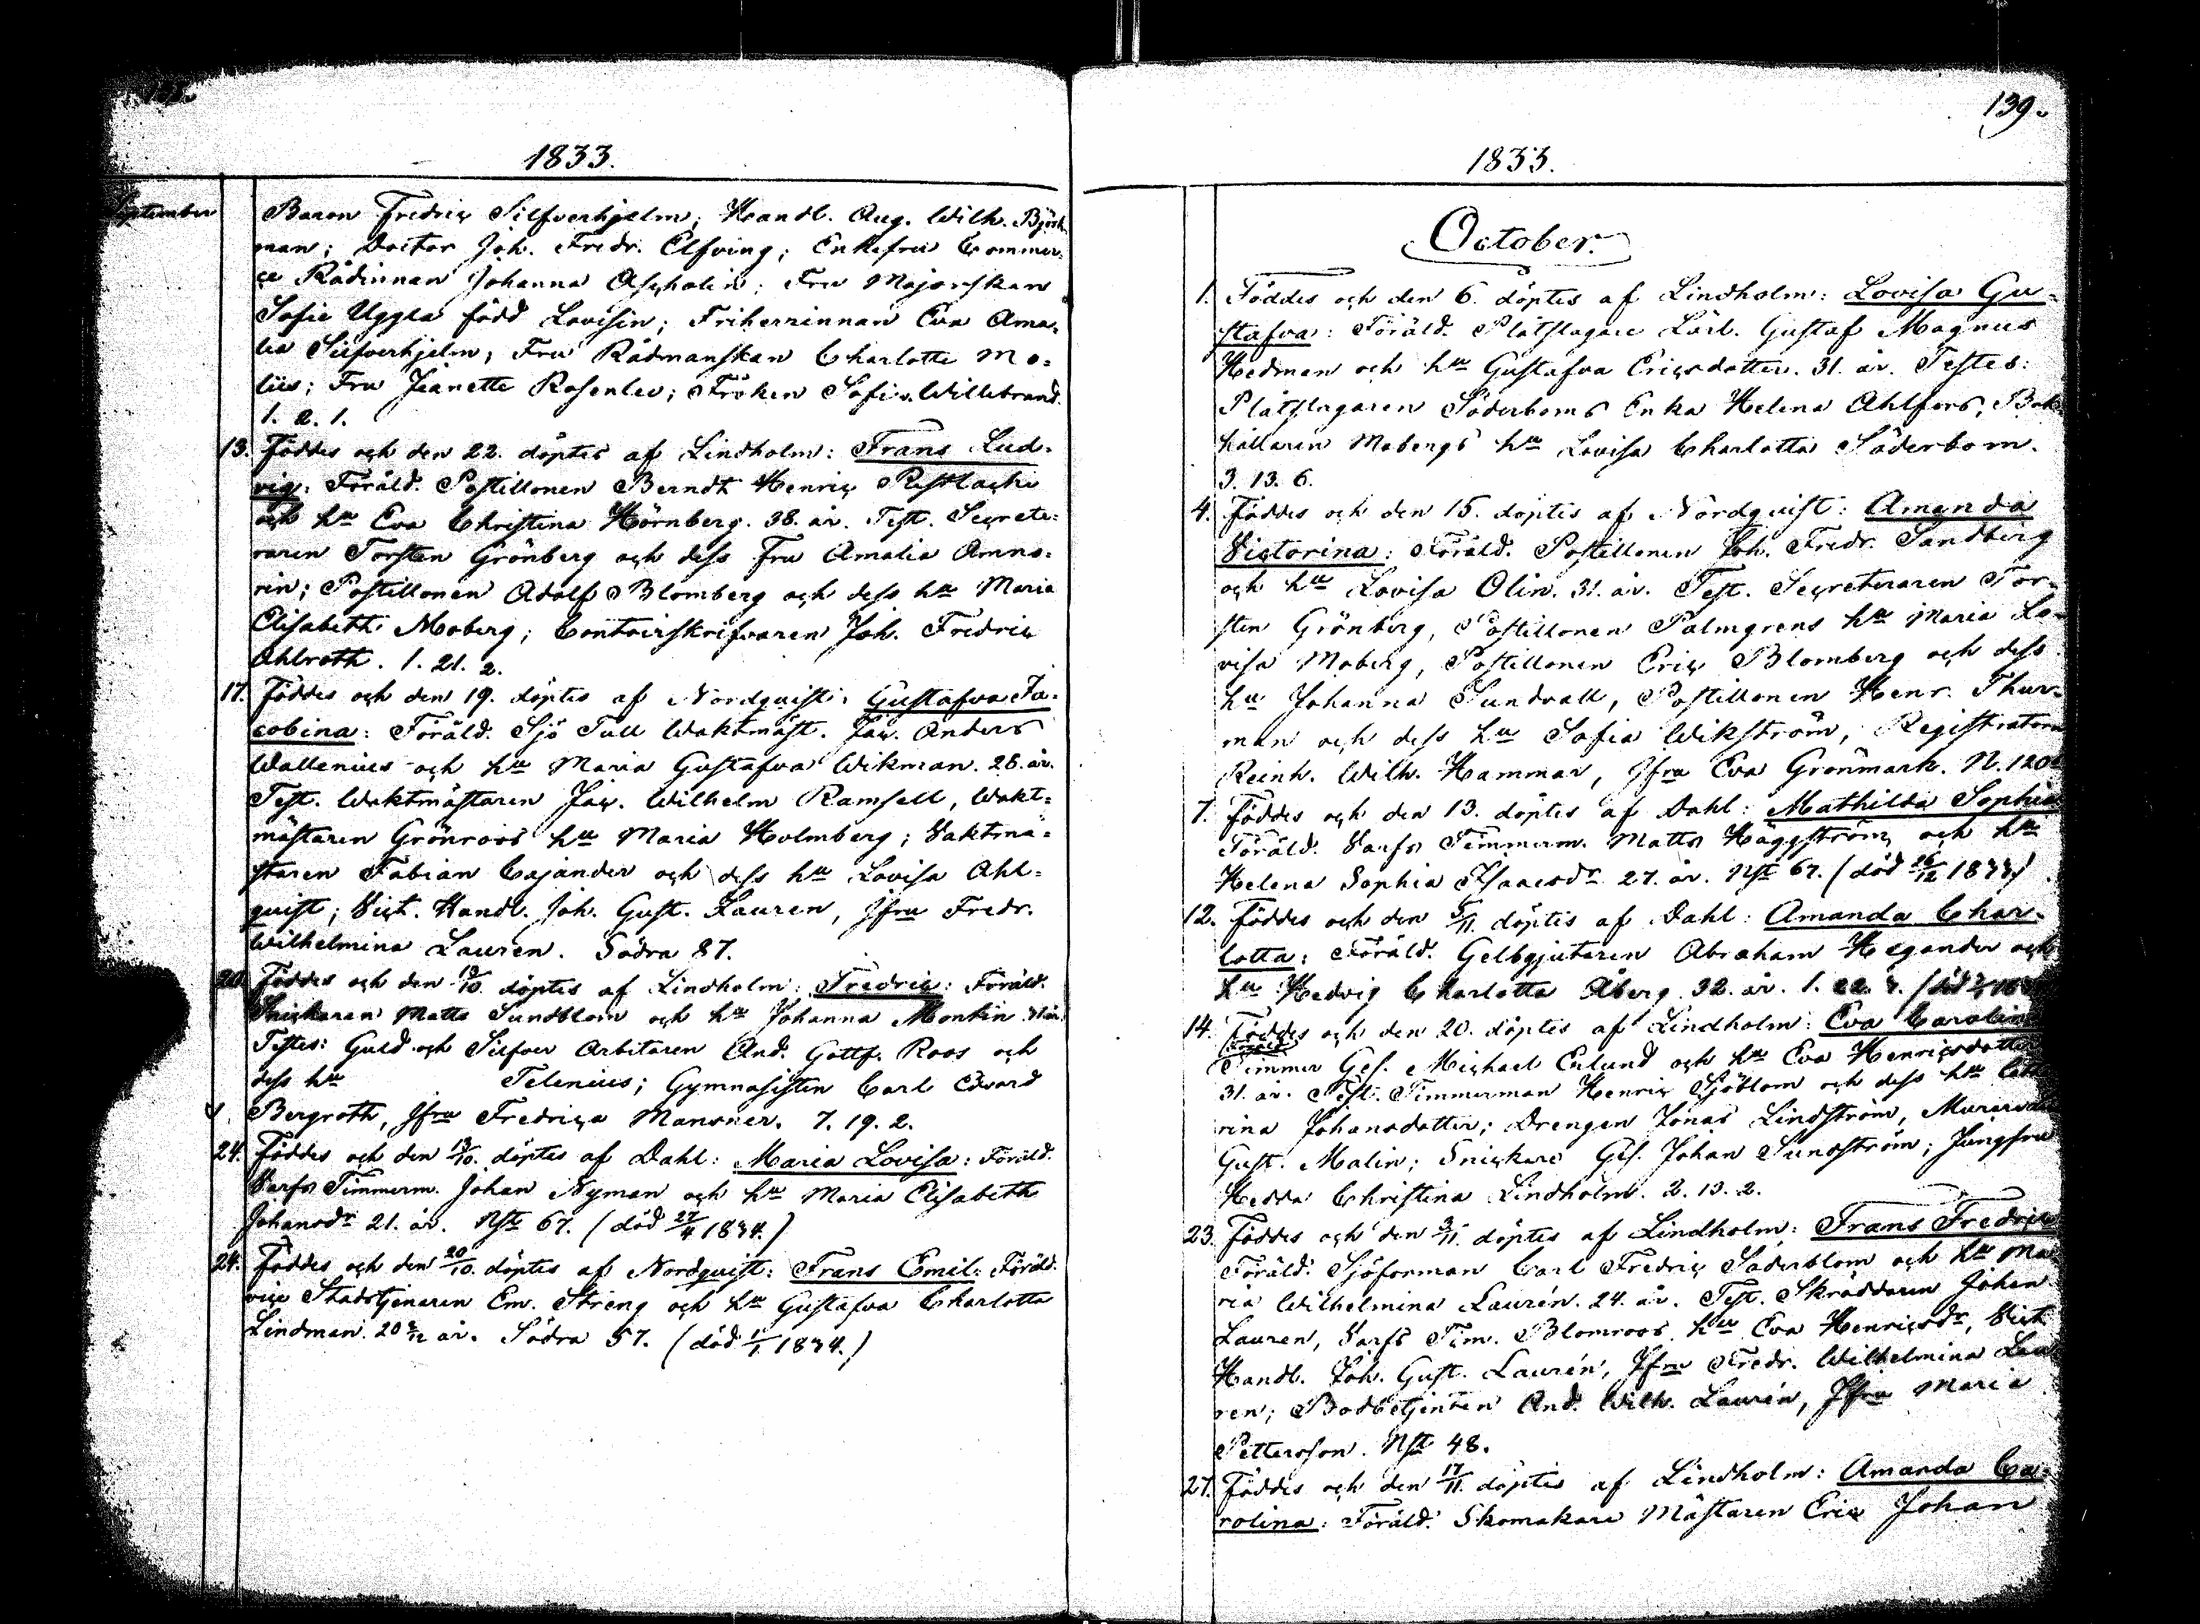 138.
1833.
September
Baron Fredric Silfverhjelm; Handl. Aug. Wilh. Björk-
man; Doctor Joh. Fredr. Elfving; Enkefru Commer-
ce Rådinnan Johanna Ascholin; Fru Majorskan
Sofie Uggla född Lovisin; Friherrinnan Eva Ama-
lia Silfverhjelm; Fru Rådmanskan Charlotte Mo-
liis; Fru Jeanette Rosenlew; Fröken Sofi v. Willebrand.
1. 2. 1.
13. Föddes och den 22. döptes af Lindholm: Frans Lud-
vig: Föräld. Postillonen Berndt Henric
och hu Eva Christina Hörnberg. 38. år. Test. Secrete-
raren Torsten Grönberg och dess fru Amalia Amno-
rin; Postillonen Adolf Blomberg och dess hu Maria
Elisabeth Moberg; Contoirskrifvaren Joh. Fredric
Ahlroth. 1. 21. 2.
17. Föddes och den 19. döptes af Nordquist: Gustafva Ja-
cobina: Föräld. Sjö Tull Waktmäst. Jac. Anders
Wallenius och hu Maria Gustafva Wikman. 28. år.
Test. Waktmästaren Jac. Wilhelm Ramsell, Wakt-
mästaren Grönroos hu Maria Holmberg; Vaktmä-
staren Fabian Cajander och dess hu Lovisa Ahl-
quist; Vict. Handl. Joh. Gust. Lauren, Jfru Fredr.
Wilhelmina Lauren. Södra 87.
20. Föddes och den 13/10. döptes af Lindholm: Fredric: Föräld.
Snickaren Matts Sundblom och hu Johanna Montin
Testes: Guld och Silfver Arbetaren And. Gottf. Roos och
dess hu Telenius; Gymnasisten Carl Edvard
Bergroth, Jfru Fredrica Mansner. 7. 19. 2.
24. Föddes och den 13/10. döptes af Dahl: Maria Lovisa: Föräld.
Varfs Timmerm. Johan Nyman och hu Maria Elisabeth
Johansdr 21. år. Nst 67. (död 27/4 1834.)
24. Föddes och den 20/10. döptes af Nordquist: Frans Emil: Föräld.
vice Stadstjenaren Em. Streng och hu Gustafva Charlotta
Lindman. 20 år. Södra 57. (död 11/1 1834.)
139.
1833.
October.
1. Föddes och den 6. döptes af Lindholm: Lovisa Gu-
stafva: Föräld. Plåtslagare Lärl. Gustaf Magnus
Hedman och hu Gustafva Ericsdotter. 31. år. Testes:
Plåtslagaren Söderboms Enka Helena Ahlfors, Bok-
hållaren Mobergs hu Lovisa Charlotta Söderbom.
3. 13. 6.
4. Föddes och den 15. döptes af Nordquist: Amanda
Victorina: Föräld. Postillonen Joh. Fredr. Sandberg
och hu Lovisa Olin. 31. år. Test. Secreteraren Tor-
sten Grönberg, Postillonen Palmgrens hu Maria Lo-
visa Moberg, Postillonen Eric Blomberg och dess
hu Johanna Sundvall, Postillonen Henr. Thur-
man och dess hu Sofia Wikström, Registratorn
Reinh. Wilh. Hammar, Jfru Eva Grönmark. N. 120
7. Föddes och den 13. döptes af Dahl: Mathilda Sophia
Föräld. Varfs Timmerm. Matts Häggström och hu
Helena Sophia Isaacsdr 27. år. Nst 67. (död 26/12 1833)
12. Föddes och den 5/11. döptes af Dahl: Amanda Char-
lotta: Föräld. Gelbgjutaren Abraham Hegander och
hu Hedvig Charlotta Åberg 32. år. 1. 22. 3. (död
14. Föddes och den 20. döptes af Lindholm: Eva Carolina
Föräld:
Timmer Ges. Michael Enlund och hu Eva Henricsdotter
31. år. Test. Timmerman Henric Sjöblom och dess hu Catha
rina Johansdotter; Drengen Jonas Lindström, Murare
Gust. Malin; Snickare Ges. Johan Sundström; Jungfru
Hedda Christina Lindholm. 2. 13. 2.
23. Föddes och den 3/11. döptes af Lindholm: Frans Fredric
Föräld. Sjöforman Carl Fredric Söderblom och hu Ma
ria Wilhelmina Laurén. 24. år. Test. Skräddaren Johan
Lauren, Varfs Tim. Blomroos hu Eva Henricsdr, Vict.
Handl. Joh. Gust. Laurén, Jfru Fredr. Wilhelmina Lau
ren; Bodbetjenten And. Wilh. Laurén, Jfru Maria
Pettersson. Nst 48.
27. Föddes och den 17/11. döptes af Lindholm: Amanda Ca-
rolina: Föräld. Skomakare Mästaren Eric Johan